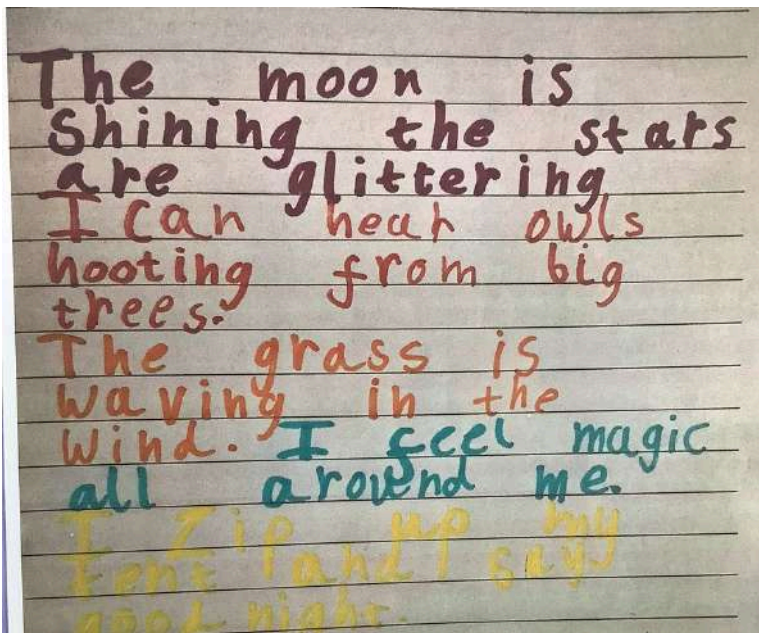 The moon is
Shining the stars
are glittering
I can hear owls
hooting from big
trees.
The grass is
waving in the
wind. I feel magic
all around me.
I zip up my
tent and say
good night.